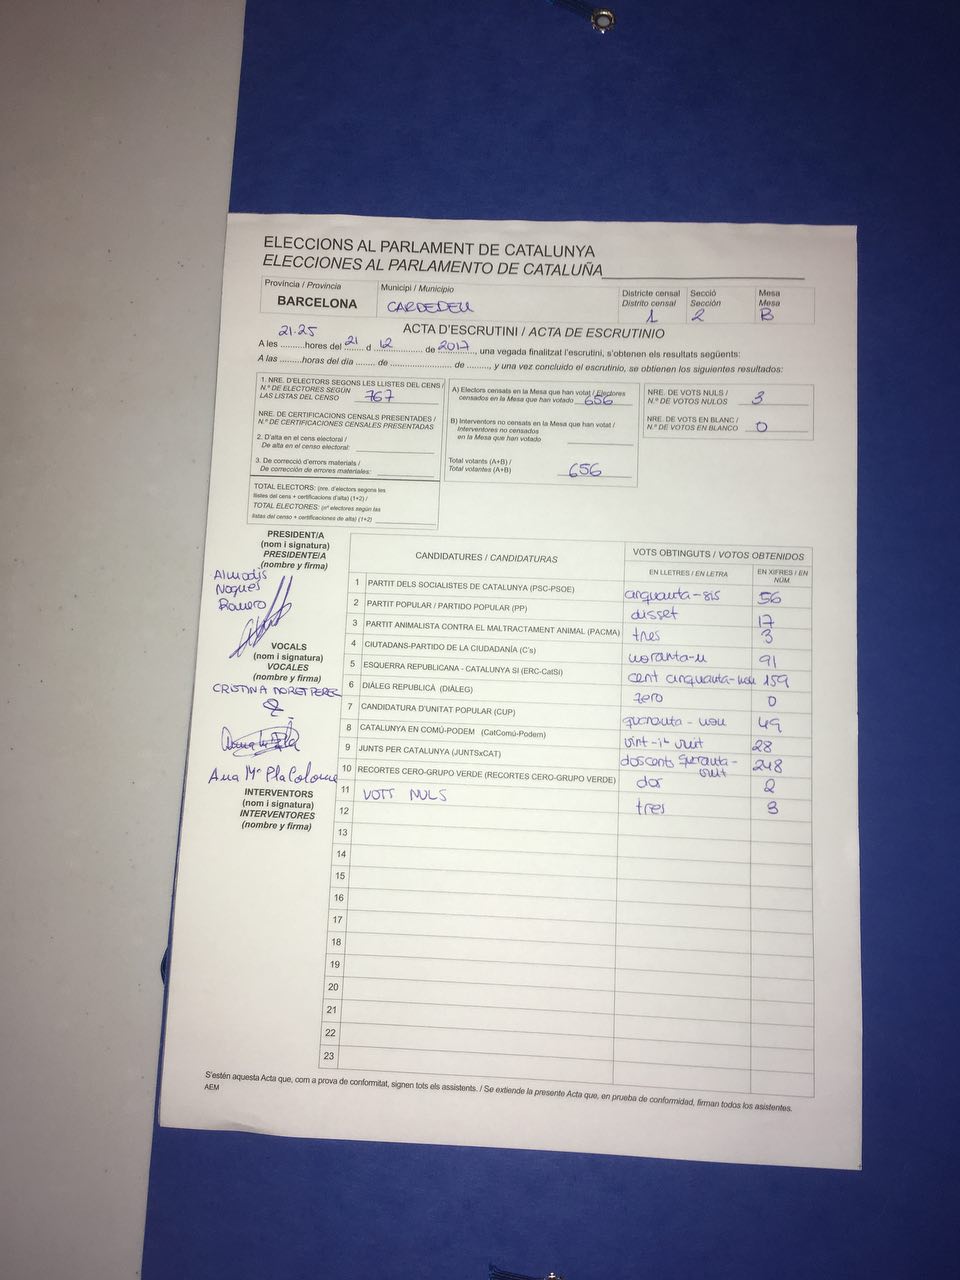 ELECCIONS AL PARLAMENT DE CATALUNYA
ELECCIONES AL PARLAMENTO DE CATALUÑA
Província / Provincia
BARCELONA
Municipi / Municipio
CARDEDEU
Districte censal
Distrito censal
1
Secció
Sección
2
Mesa
Mesa
B
ACTA D'ESCRUTINI / ACTA DE ESCRUTINIO
21.25
A les ..........hores del 21 d 12 de 2017, una vegada finalitzat l'escrutini, s'obtenen els resultats següents:
A las ..........horas del día ....... de ................. de .........., y una vez concluido el escrutinio, se obtienen los siguientes resultados:
1. NRE. D'ELECTORS SEGONS LES LLISTES DEL CENS /
N.º DE ELECTORES SEGÚN
LAS LISTAS DEL CENSO 767
NRE. DE CERTIFICACIONS CENSALS PRESENTADES /
N.º DE CERTIFICACIONES CENSALES PRESENTADAS
2. D'alta en el cens electoral /
De alta en el censo electoral:
3. De correcció d'errors materials /
De corrección de errores materiales:
TOTAL ELECTORS: (nre. d'electors segons les
llistes del cens + certificacions d'alta) (1+2) /
TOTAL ELECTORES: (nº electores según las
listas del censo + certificaciones de alta) (1+2)
A) Electors censats en la Mesa que han votat / Electores
censados en la Mesa que han votado 656
B) Interventors no censats en la Mesa que han votat /
Interventores no censados
en la Mesa que han votado
Total votants (A+B) /
Total votantes (A+B) 656
NRE. DE VOTS NULS /
N.º DE VOTOS NULOS 3
NRE. DE VOTS EN BLANC /
N.º DE VOTOS EN BLANCO 0
PRESIDENT/A
(nom i signatura)
PRESIDENTE/A
(nombre y firma)
Almodis
Nogués
Romero
VOCALS
(nom i signatura)
VOCALES
(nombre y firma)
CRISTINA
Ana Mª Pla Colome
INTERVENTORS
(nom i signatura)
INTERVENTORES
(nombre y firma)
CANDIDATURES / CANDIDATURAS
VOTS OBTINGUTS / VOTOS OBTENIDOS
EN LLETRES / EN LETRA
EN XIFRES / EN NÚM.
1 PARTIT DELS SOCIALISTES DE CATALUNYA (PSC-PSOE) cinquanta-sis 56
2 PARTIT POPULAR / PARTIDO POPULAR (PP) disset 17
3 PARTIT ANIMALISTA CONTRA EL MALTRACTAMENT ANIMAL (PACMA) tres 3
4 CIUTADANS-PARTIDO DE LA CIUDADANÍA (C's) noranta-u 91
5 ESQUERRA REPUBLICANA - CATALUNYA SÍ (ERC-CatSí) cent cinquanta-nou 159
6 DIÀLEG REPUBLICÀ (DIÀLEG) zero 0
7 CANDIDATURA D'UNITAT POPULAR (CUP) quaranta-nou 49
8 CATALUNYA EN COMÚ-PODEM (CatComú-Podem) vint-i-vuit 28
9 JUNTS PER CATALUNYA (JUNTSxCAT) doscents quaranta-vuit 248
10 RECORTES CERO-GRUPO VERDE (RECORTES CERO-GRUPO VERDE) dos 2
11 VOTS NULS tres 3
12
13
14
15
16
17
18
19
20
21
22
23
S'estén aquesta Acta que, com a prova de conformitat, signen tots els assistents. / Se extiende la presente Acta que, en prueba de conformidad, firman todos los asistentes.
AEM